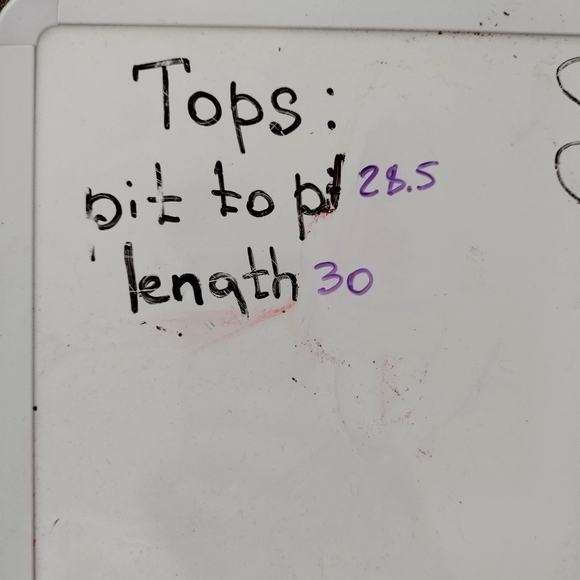 Tops:
pit to pit 28.5
length 30